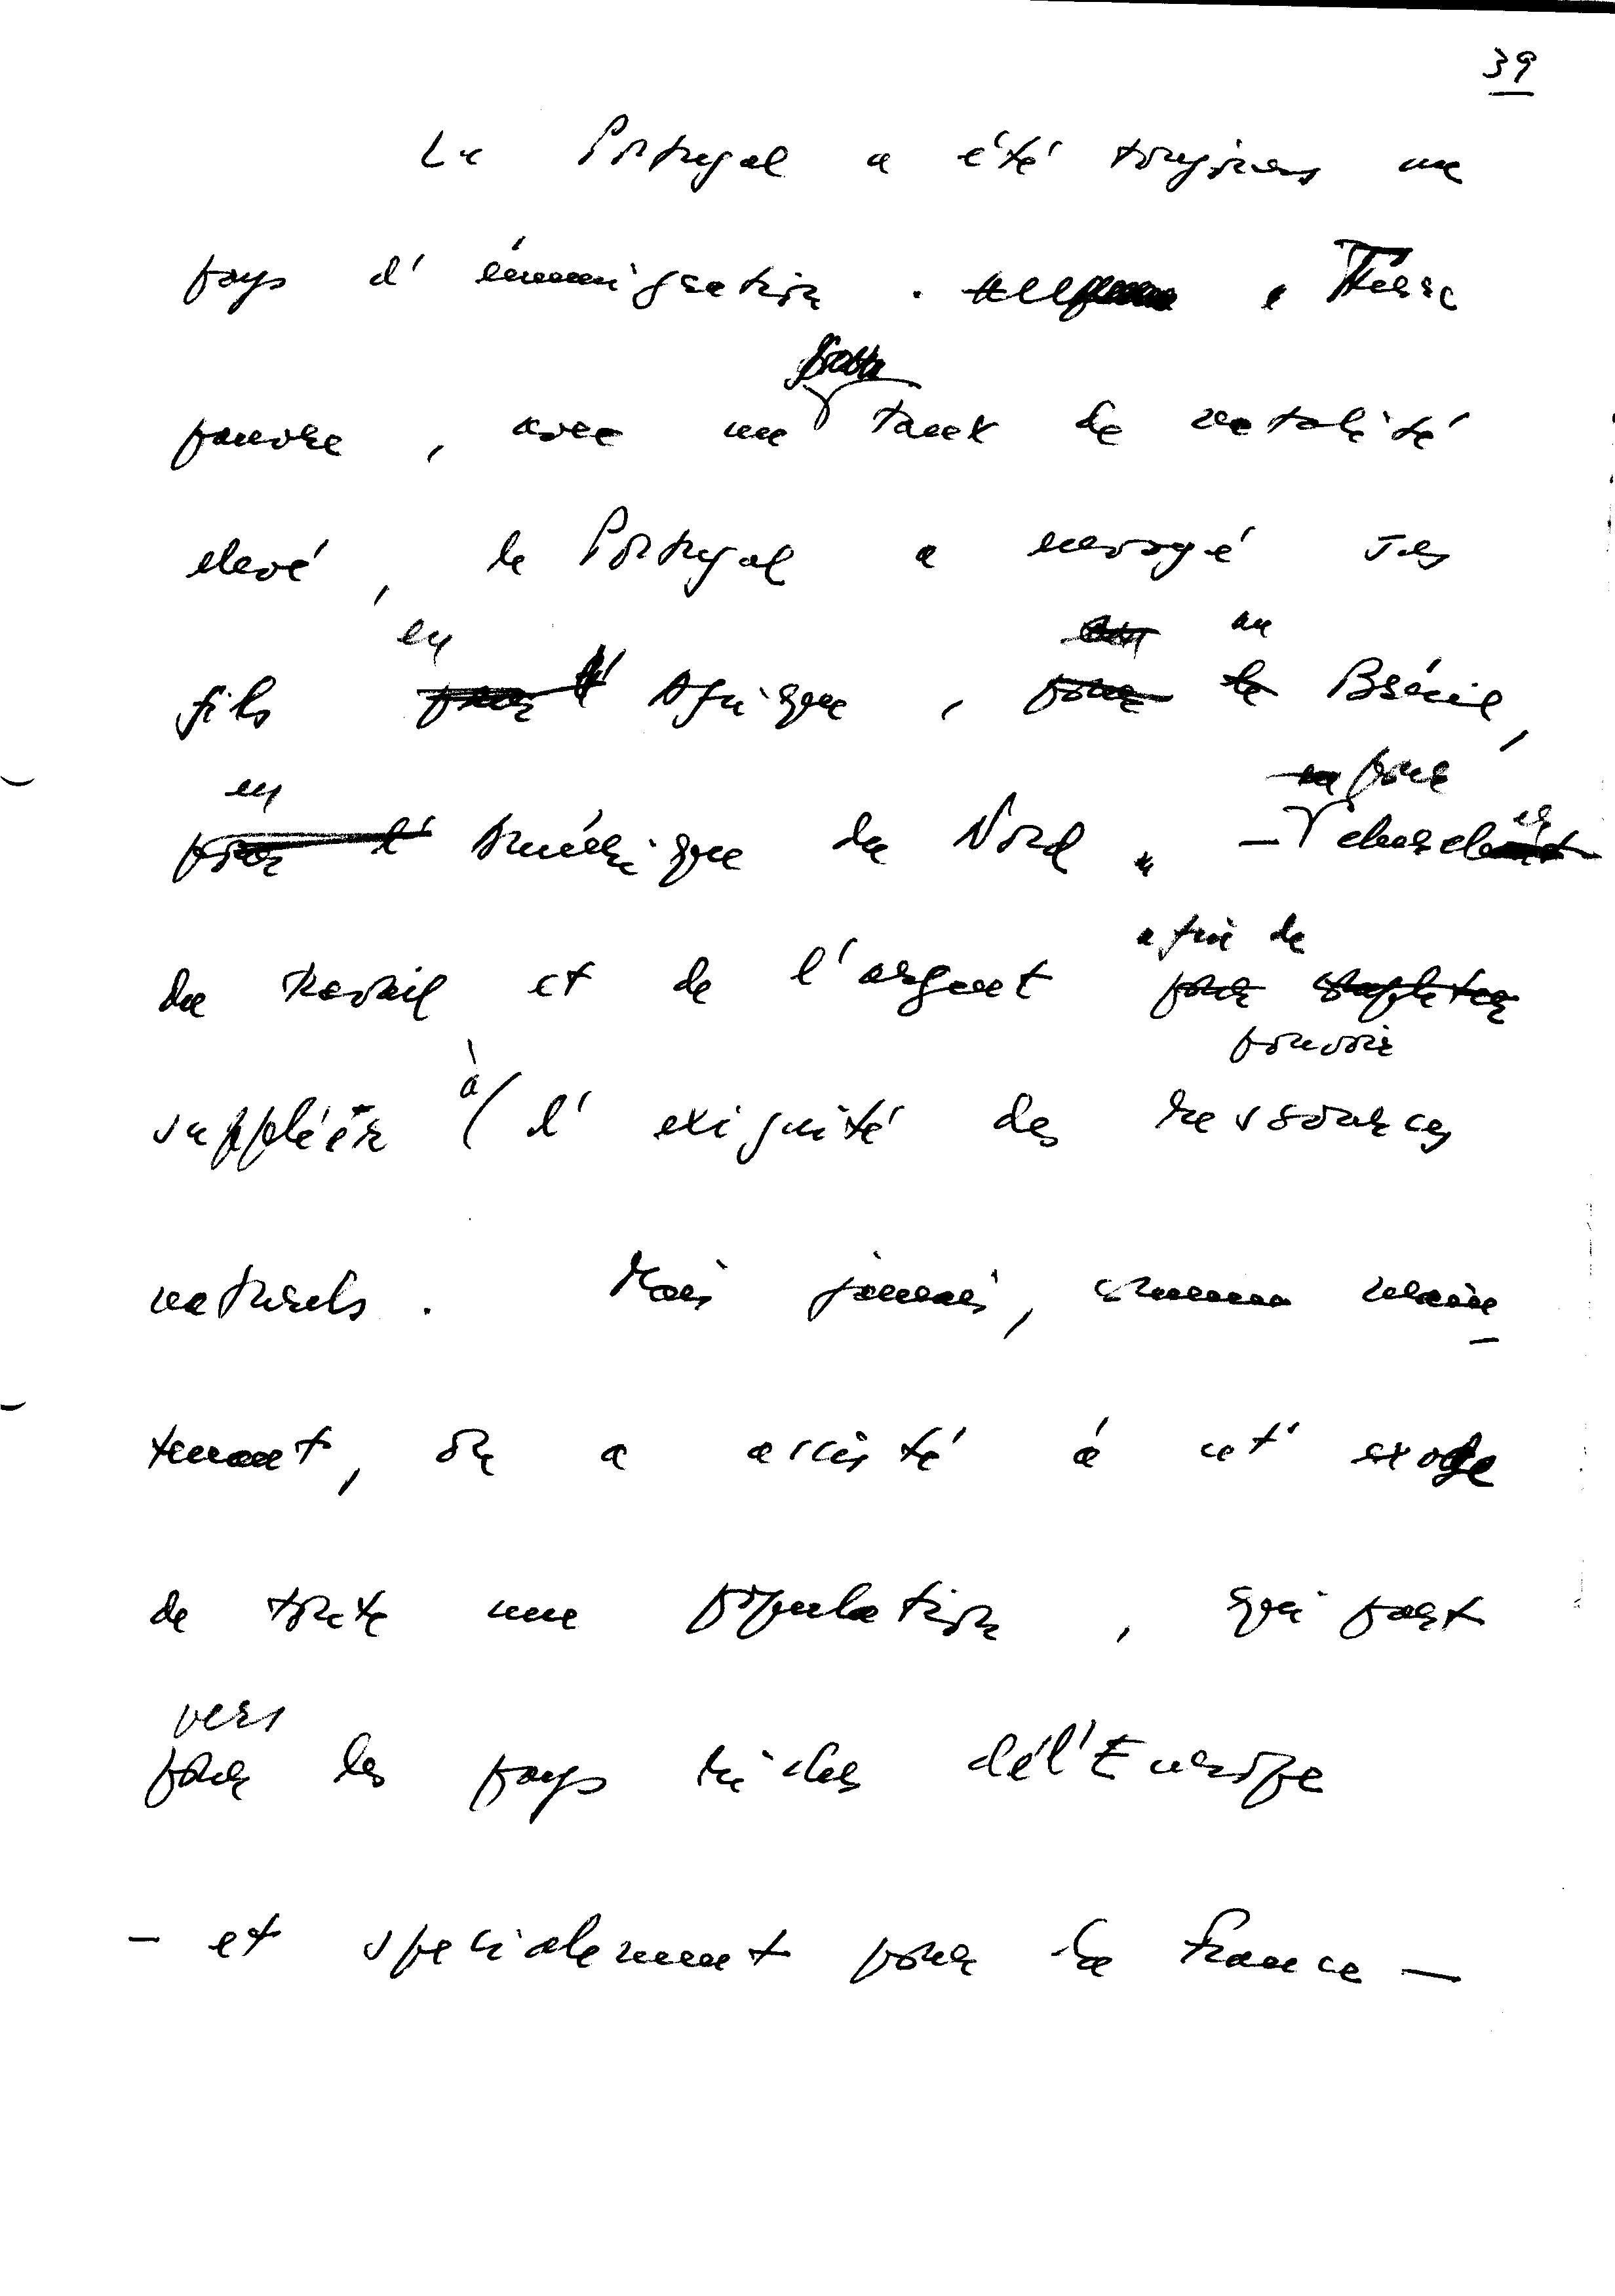 39
Le Portugal a été toujours un
pays d'émmigration. Terre
pauvre, avec un taux de natalité
elevé, le Portugal a envoyé ses
en au
fils pour l' Afrique, pour le Brésil,
en pour
pour l' Amérique du Nord - chercher
afin de
du travail et de l'argent pour
pouvoir
suppléer à l'exiguité des ressources
naturels. Mais jamais, comme main-
tenant, on a assisté à cet exode
de toute une population, qui part
vers
pour les pays riches de l'Europe
- et specialement pour la France -